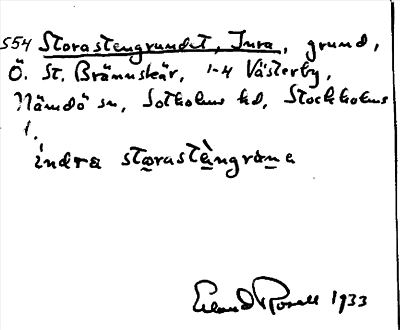 554 Storastengrundet, Inra, grund,
Ö. St. Brännskär, 1-4 Västerby,
Nämdö sn, Sotholms hd, Stockholms
l.
indra starastèngrøne
Erland Rosell 1933